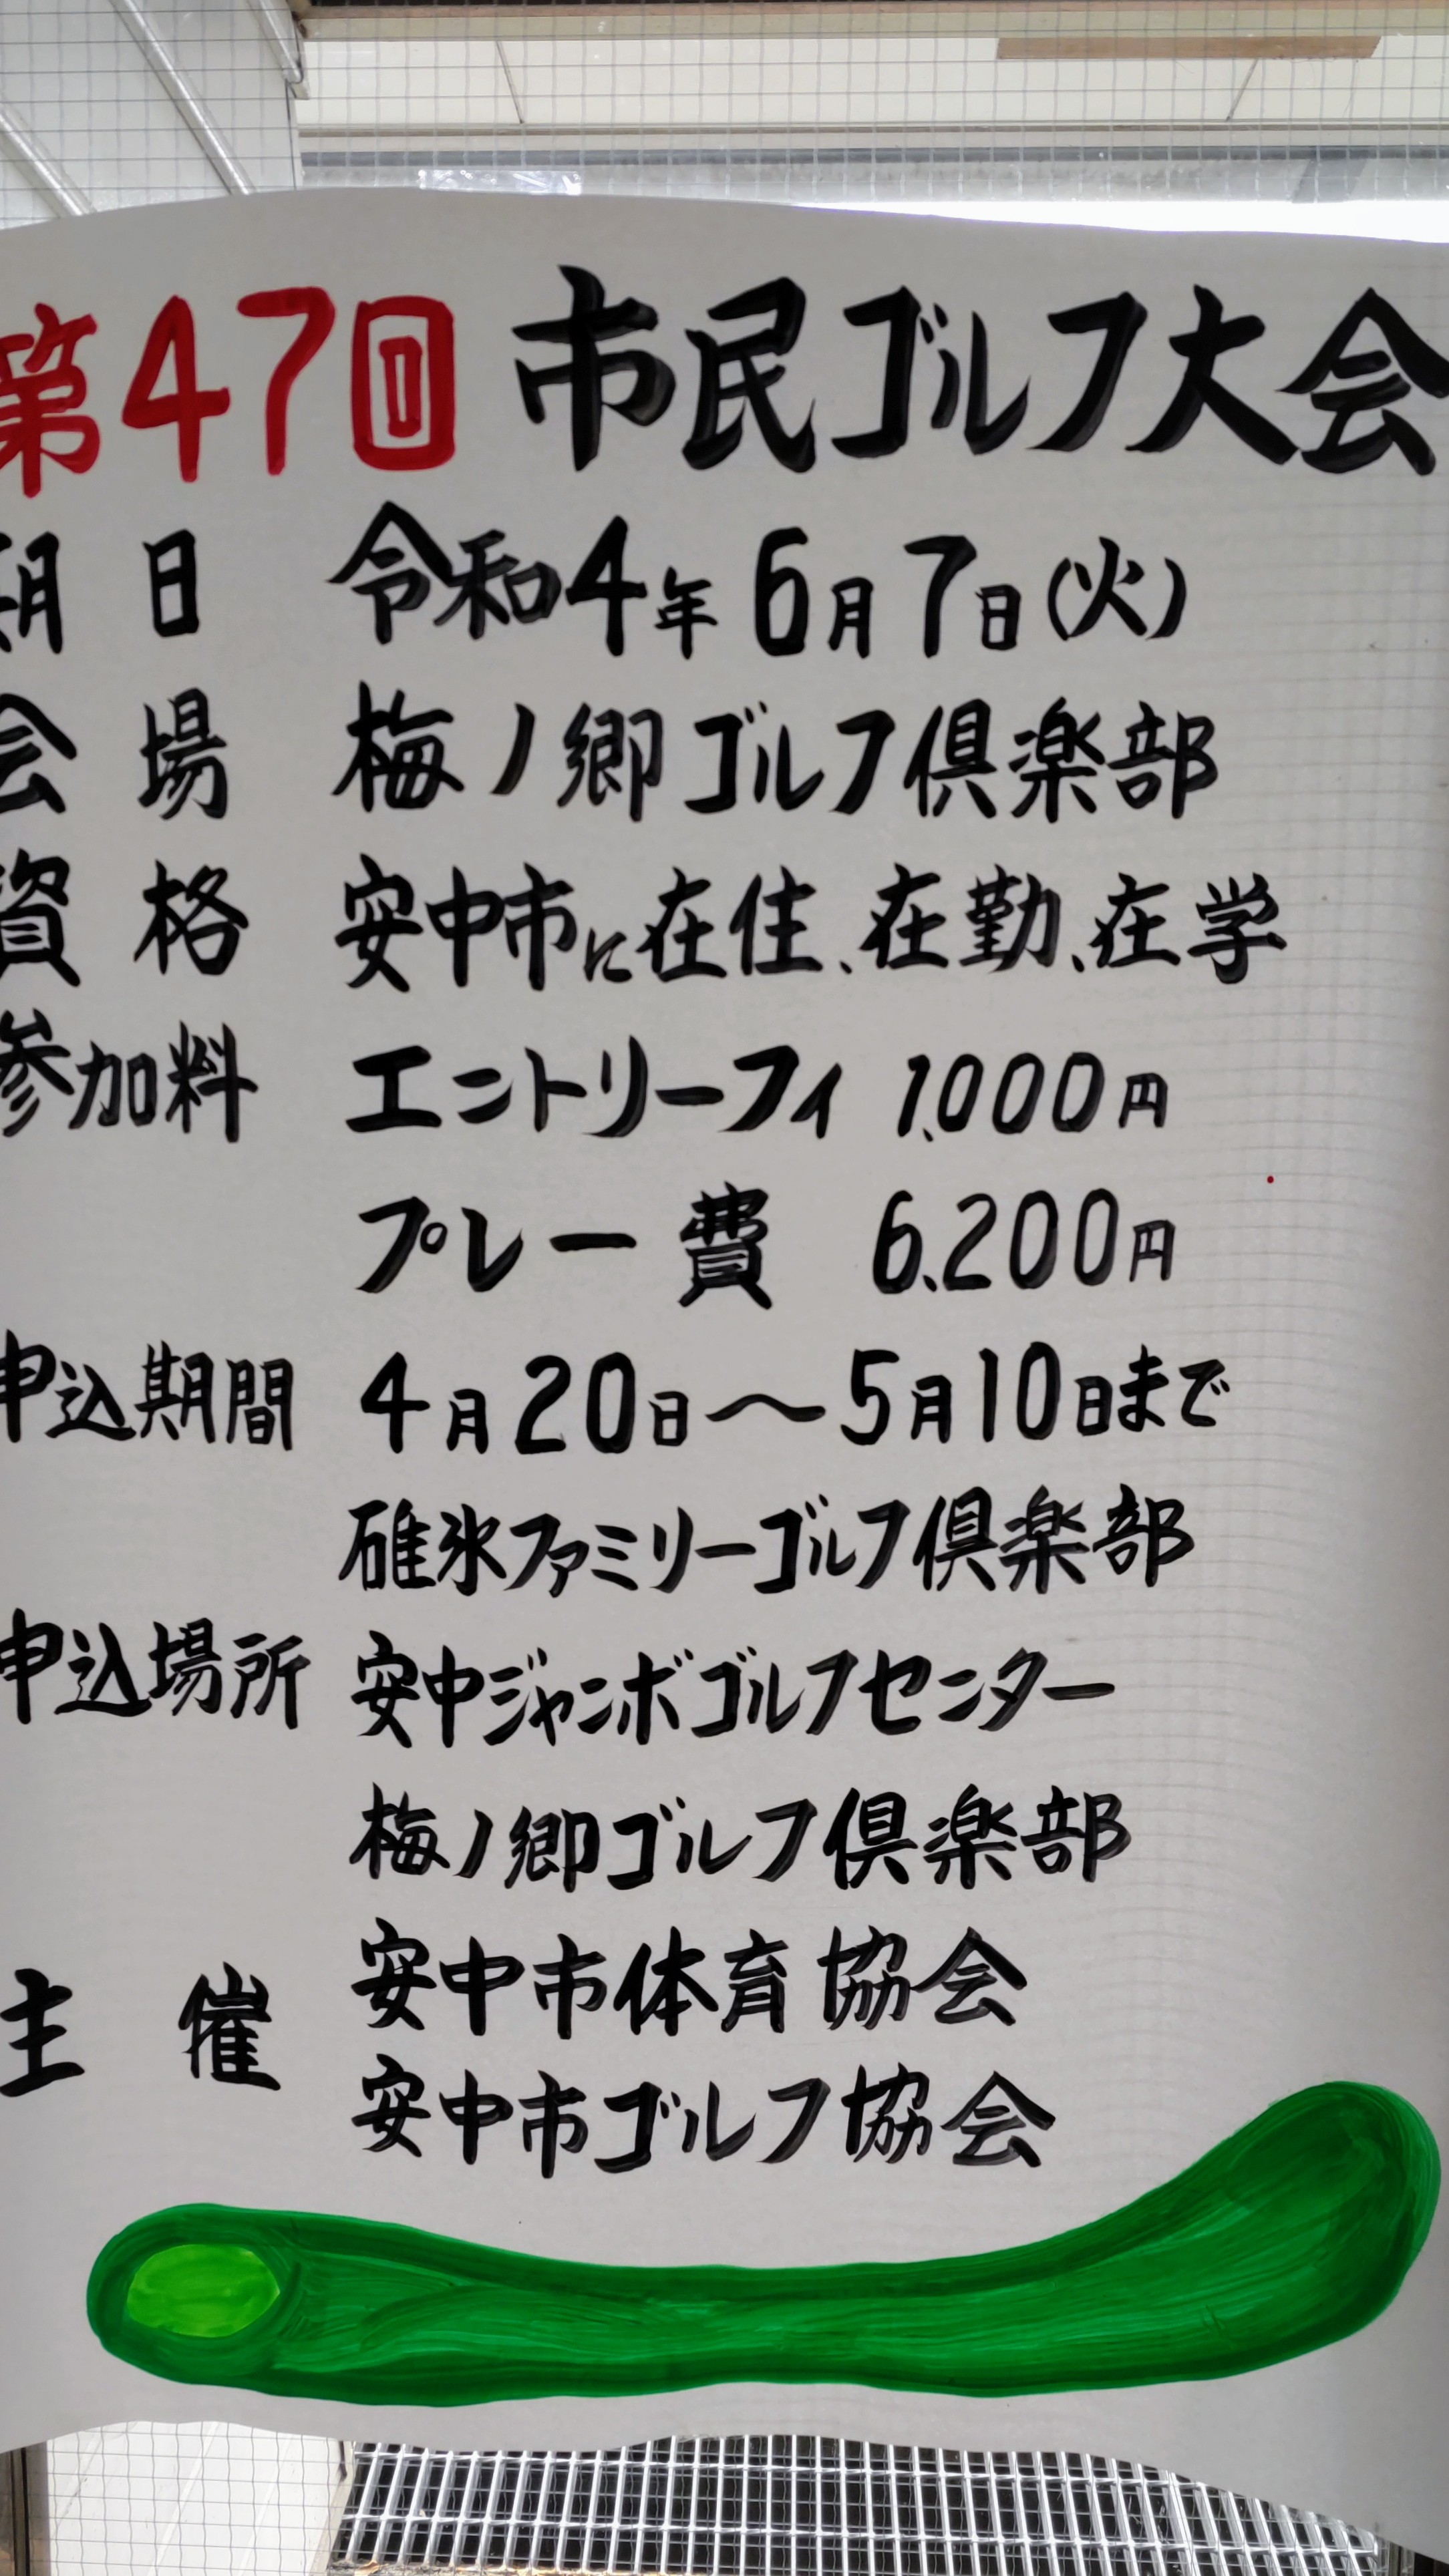 第47回 市民ゴルフ大会
期日 令和4年6月7日(火)
会場 梅ノ郷ゴルフ倶楽部
資格 安中市に在住、在勤、在学
参加料 エントリーフィ 1,000円
プレー費 6,200円
申込期間 4月20日〜5月10日まで
碓氷ファミリーゴルフ倶楽部
申込場所 安中ジャンボゴルフセンター
梅ノ郷ゴルフ倶楽部
主催 安中市体育協会
安中市ゴルフ協会